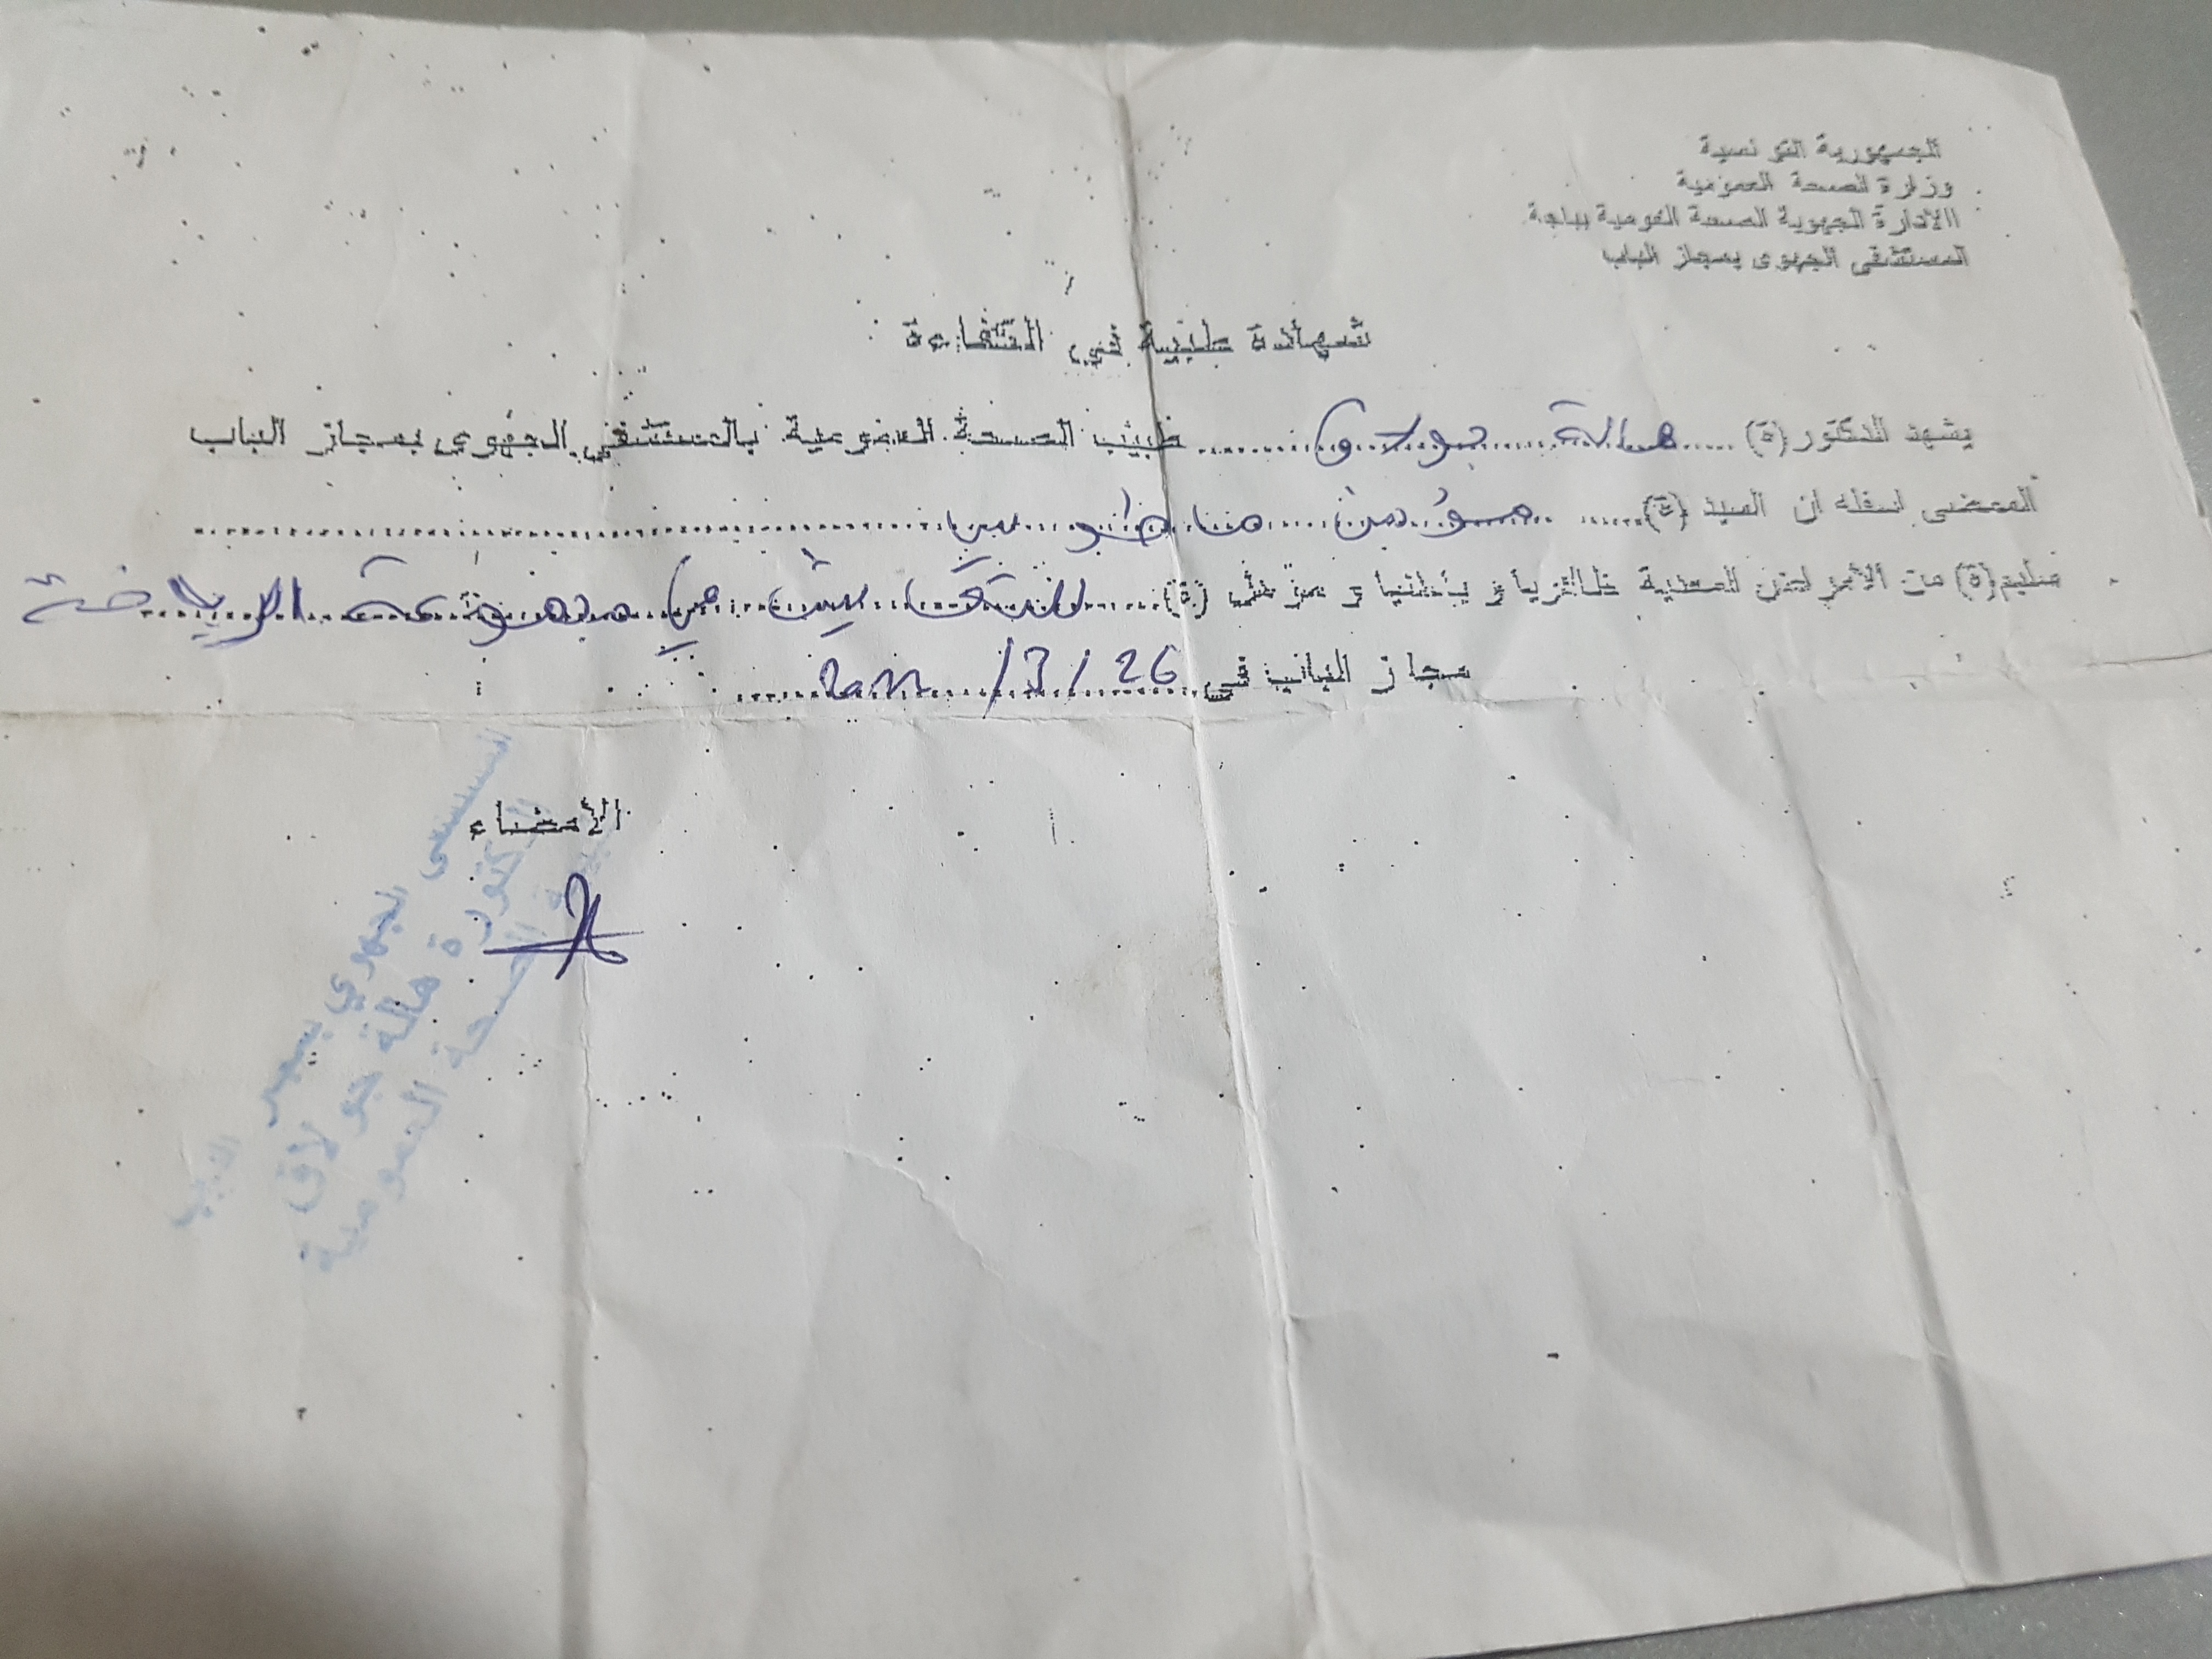 الجمهورية التونسية
وزارة الصحة العمومية
الادارة الجهوية الصحة العومية بباجة
المستشفى الجهوى بمجاز الباب
شهادة طبية في الكفاءة
يشهد الدكتور (ة) هالة جولاق طبيب الصحة العمومية بالمستشفى الجهوي بمجاز الباب
الممضى اسفله ان السيد (ة) مؤمن
سليم (ة) من الأمراض المعدية ظاهريا و باطنيا و مؤهل (ة) الرياضة
مجاز الباب في 26 / 3 / 2022
الأمضاء
المستشفى الجهوي بمجاز الباب
الدكتورة هالة جولاق
طبيبة الصحة العمومية